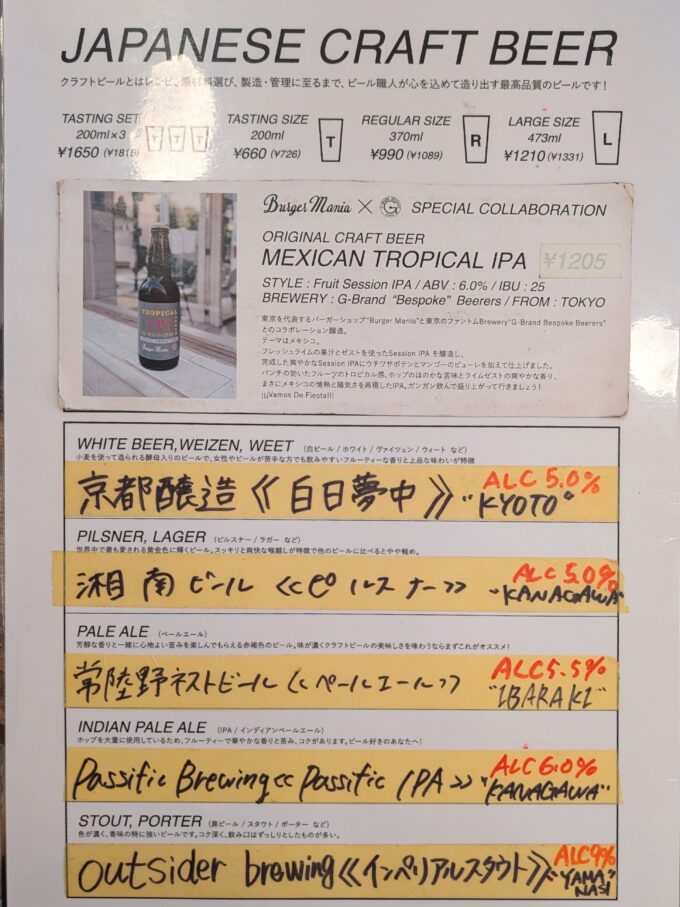 JAPANESE CRAFT BEER
クラフトビールとはレシピ、原材料選び、製造・管理に至るまで、ビール職人が心を込めて造り出す最高品質のビールです！
TASTING SET
200ml×3
¥1650 (¥1815)
TASTING SIZE
200ml
¥660 (¥726)
T
REGULAR SIZE
370ml
¥990 (¥1089)
R
LARGE SIZE
473ml
¥1210 (¥1331)
L
Burger Mania × G SPECIAL COLLABORATION
ORIGINAL CRAFT BEER
MEXICAN TROPICAL IPA ¥1205
STYLE : Fruit Session IPA / ABV : 6.0% / IBU : 25
BREWERY : G-Brand “Bespoke” Beerers / FROM : TOKYO
東京を代表するバーガーショップ"Burger Mania"と東京のファントムBrewery"G-Brand Bespoke Beerers"
とのコラボレーション醸造。
テーマはメキシコ。
フレッシュライムの果汁とゼストを使ったSession IPA を醸造し、
完成した爽やかなSession IPAにウチワサボテンとマンゴーのピューレを加えて仕上げました。
パンチの効いたフルーツのトロピカル感、ホップのほのかな苦味とライムゼストの爽やかな香り、
まさにメキシコの情熱と陽気さを再現したIPA。ガンガン飲んで盛り上がって行きましょう！
¡¡¡Vamos De Fiesta!!!
TROPICAL
IPA
Burger Mania
WHITE BEER,WEIZEN, WEET (白ビール / ホワイト / ヴァイツェン / ウィート など)
小麦を使って造られる酵母入りのビールで、女性やビールが苦手な方でも飲みやすいフルーティーな香りと上品な味わいが特徴
京都醸造《白日夢中》 ALC 5.0%
"KYOTO"
PILSNER, LAGER (ピルスナー / ラガー など)
世界中で最も愛される黄金色に輝くビール。スッキリと爽快な喉越しが特徴で他のビールに比べるとやや軽め。
湘南ビール《ピルスナー》 ALC 5.0%
"KANAGAWA"
PALE ALE (ペールエール)
芳醇な香りと一緒に心地よい苦みを楽しんでもらえる赤褐色のビール。味が濃くクラフトビールの美味しさを味わうならまずこれがオススメ！
常陸野ネストビール《ペールエール》 ALC 5.5%
"IBARAKI"
INDIAN PALE ALE (IPA / インディアンペールエール)
ホップを大量に使用しているため、フルーティーで華やかな香りと苦み、コクがあります。ビール好きのあなたへ！
Passific Brewing《Passific IPA》 ALC 6.0%
"KANAGAWA"
STOUT, PORTER (黒ビール / スタウト / ポーター など)
色が濃く、香味の特に強いビールです。コク深く、飲み口はずっしりとしたものが多い。
outsider brewing《インペリアルスタウト》 ALC 9%
"YAMA
NASI"